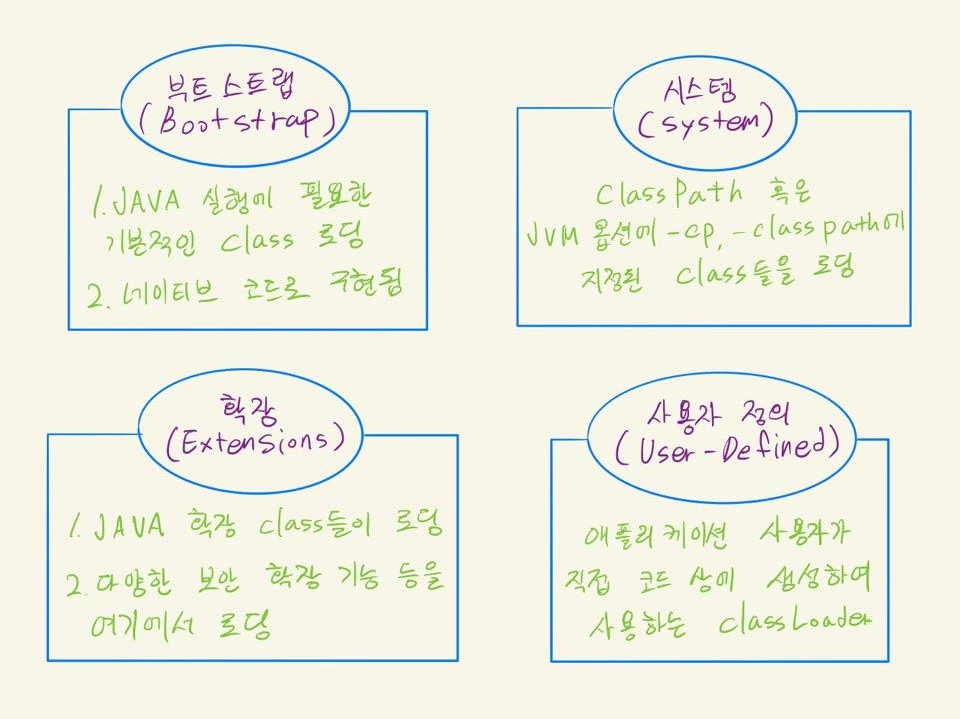 부트스트랩
(Bootstrap)
1. JAVA 실행에 필요한
기본적인 class 로딩
2. 네이티브 코드로 구현됨
시스템
(system)
class Path 혹은
JVM 옵션에 -cp, -class path에
지정된 class들을 로딩
확장
(Extensions)
1. JAVA 확장 class들이 로딩
2. 다양한 보안 확장 기능 등을
여기에서 로딩
사용자 정의
(User-Defined)
애플리케이션 사용자가
직접 코드 상에 생성하여
사용하는 classLoader